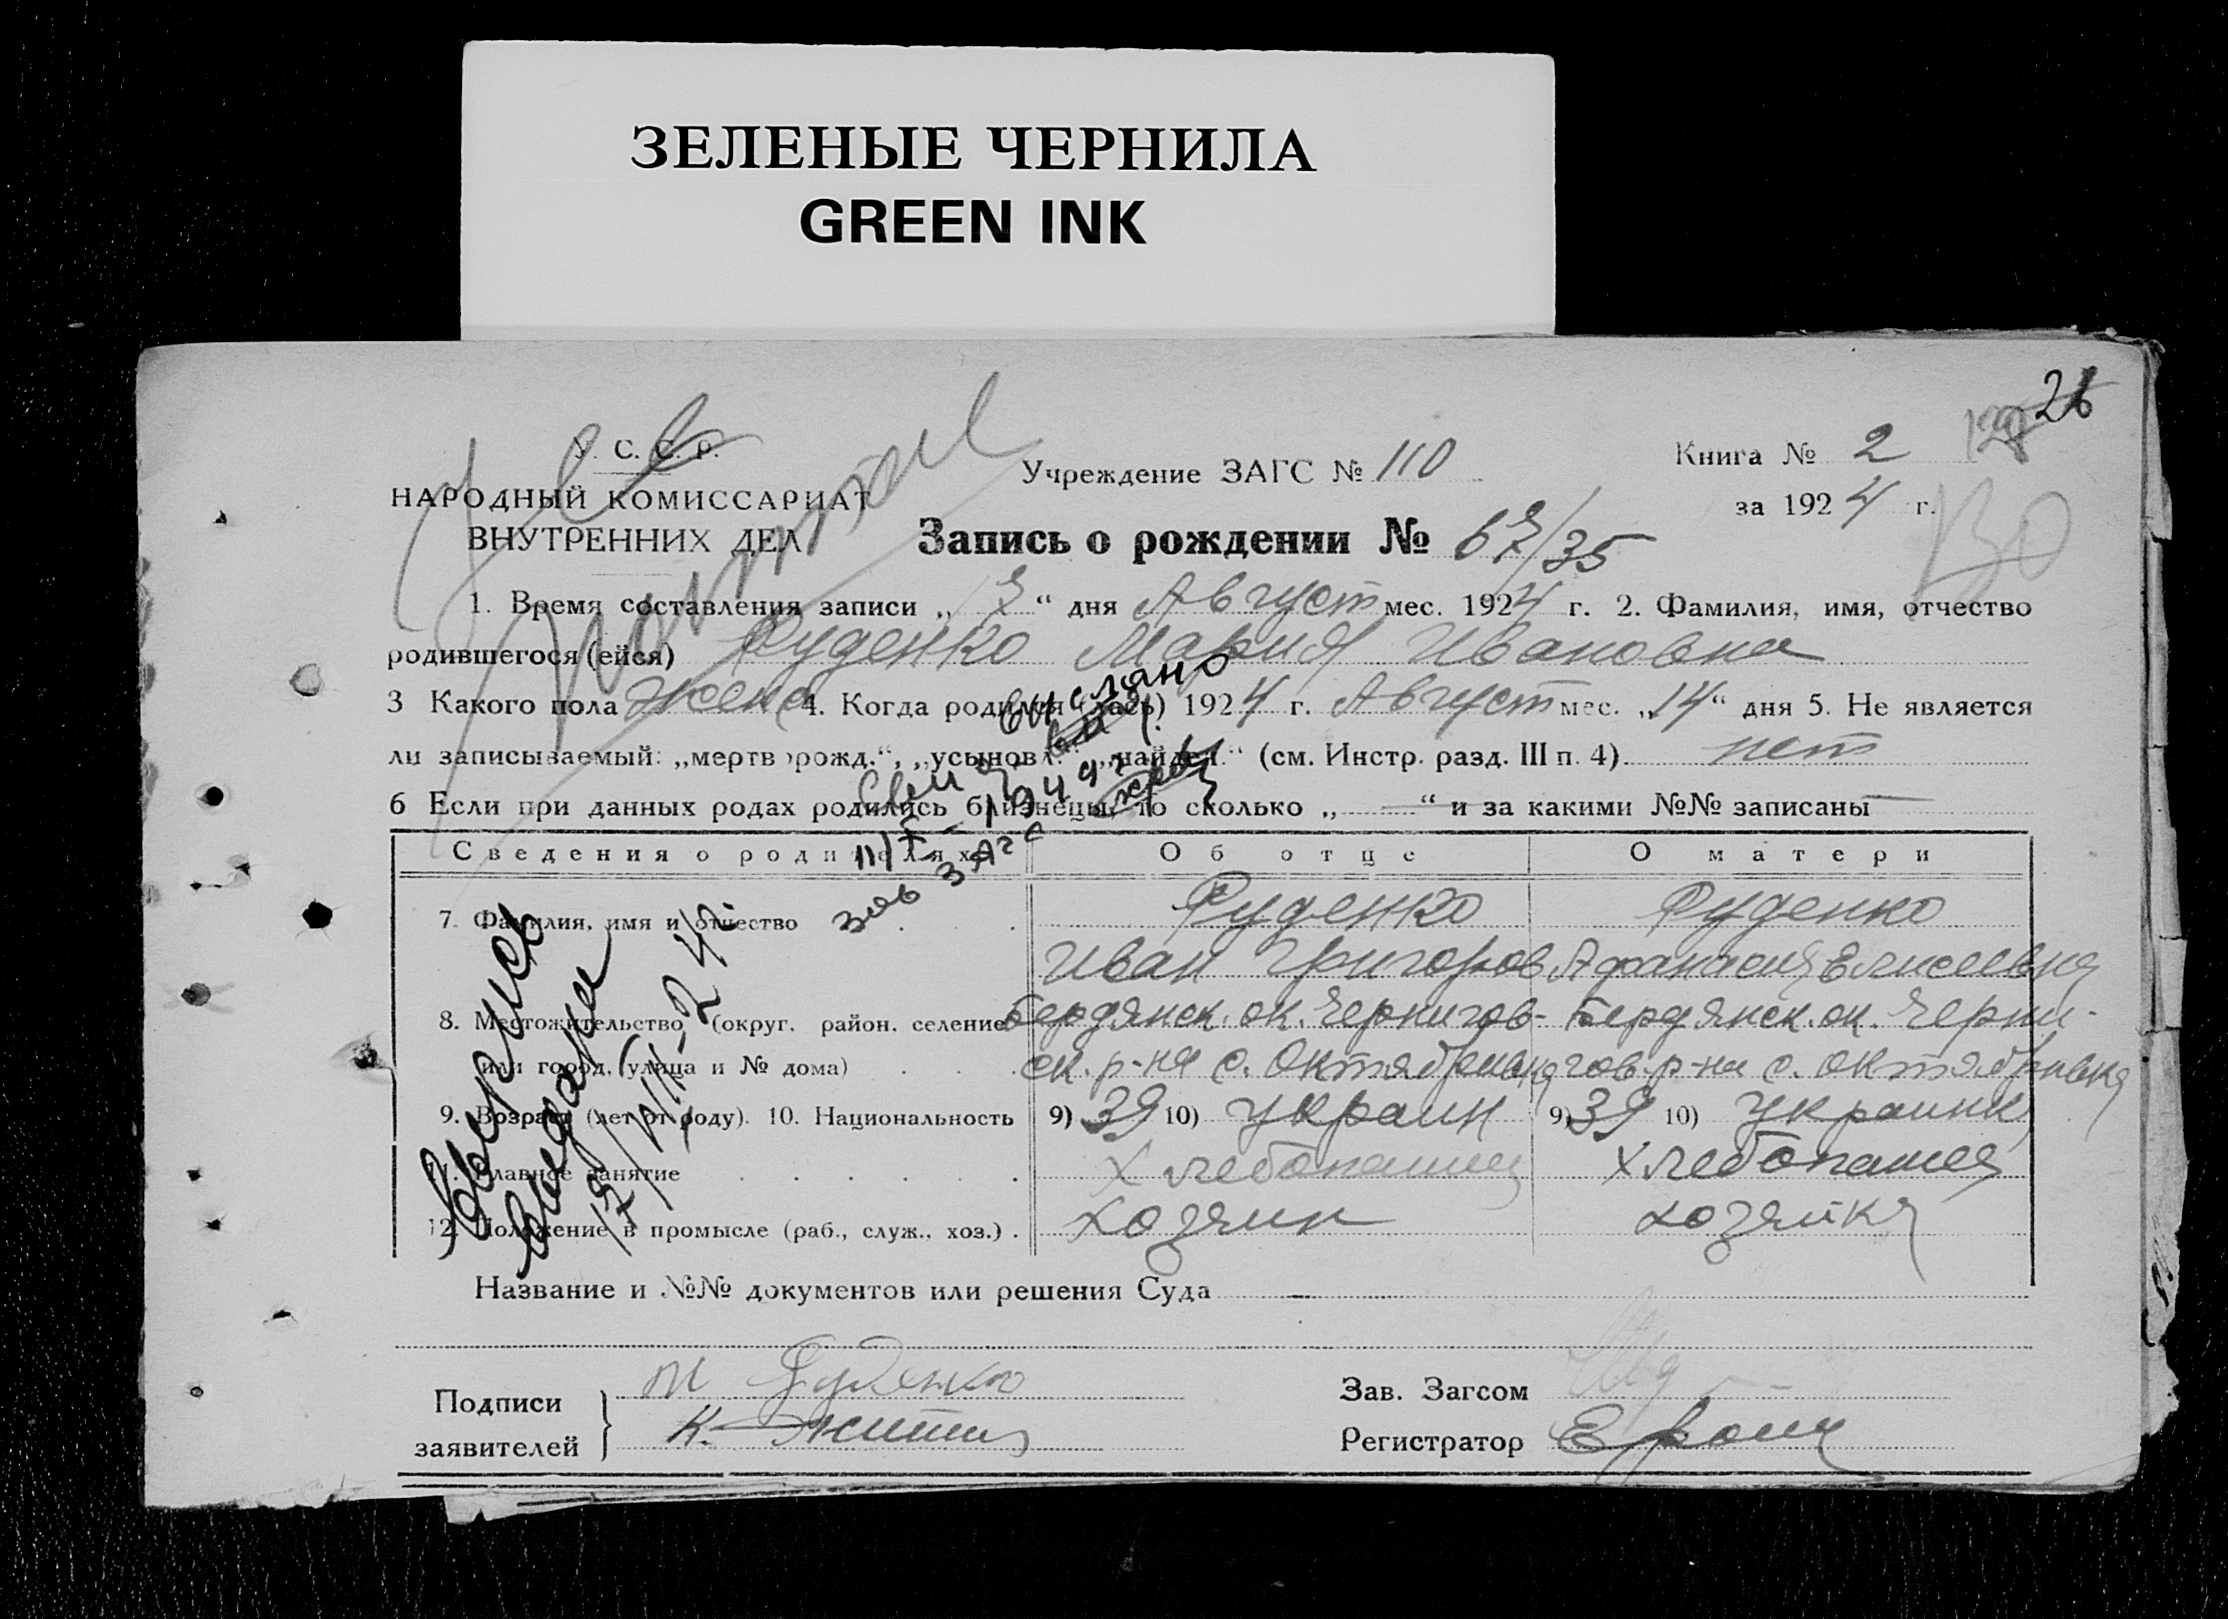 ЗЕЛЕНЫЕ ЧЕРНИЛА
GREEN INK
26
У. С. С. Р.
НАРОДНЫЙ КОМИССАРИАТ
ВНУТРЕННИХ ДЕЛ
Учреждение ЗАГС № 110
Книга № 2
за 1924 г.
130
Запись о рождении № 67/35
1. Время составления записи „ 7 “ дня Август мес. 1924 г. 2. Фамилия, имя, отчество
родившегося (ейся) Руденко Мария Ивановна
3 Какого пола жен 4. Когда родился (лась) 1924 г. Август мес. „14“ дня 5. Не является
ли записываемый: „мертворожд.“, „усыновл.“ „найден.“ (см. Инстр. разд. III п. 4) нет
6 Если при данных родах родились близнецы, то сколько „ — “ и за какими №№ записаны —
Сведения о родителях Об отце О матери
7. Фамилия, имя и отчество Руденко Руденко
Иван Григоров Афанасия Елисеевна
8. Местожительство (округ, район, селение Бердянск. ок. Чернигов- Бердянск. ок. Черни-
или город, улица и № дома) ск. р-на с. Октябривка гов. р-на с. Октябривка
9. Возраст (лет от роду). 10. Национальность 9) 39 10) украин 9) 39 10) украинк
11. Главное занятие Хлебопашец Хлебопашец
12. Положение в промысле (раб., служ., хоз.) хозяин хозяйка
Выпись
видана
17/VIII-24 г.
вислано
1944 г.
ЗАГС
Название и №№ документов или решения Суда —
Подписи
заявителей
Руденко
К.
Зав. Загсом
Регистратор